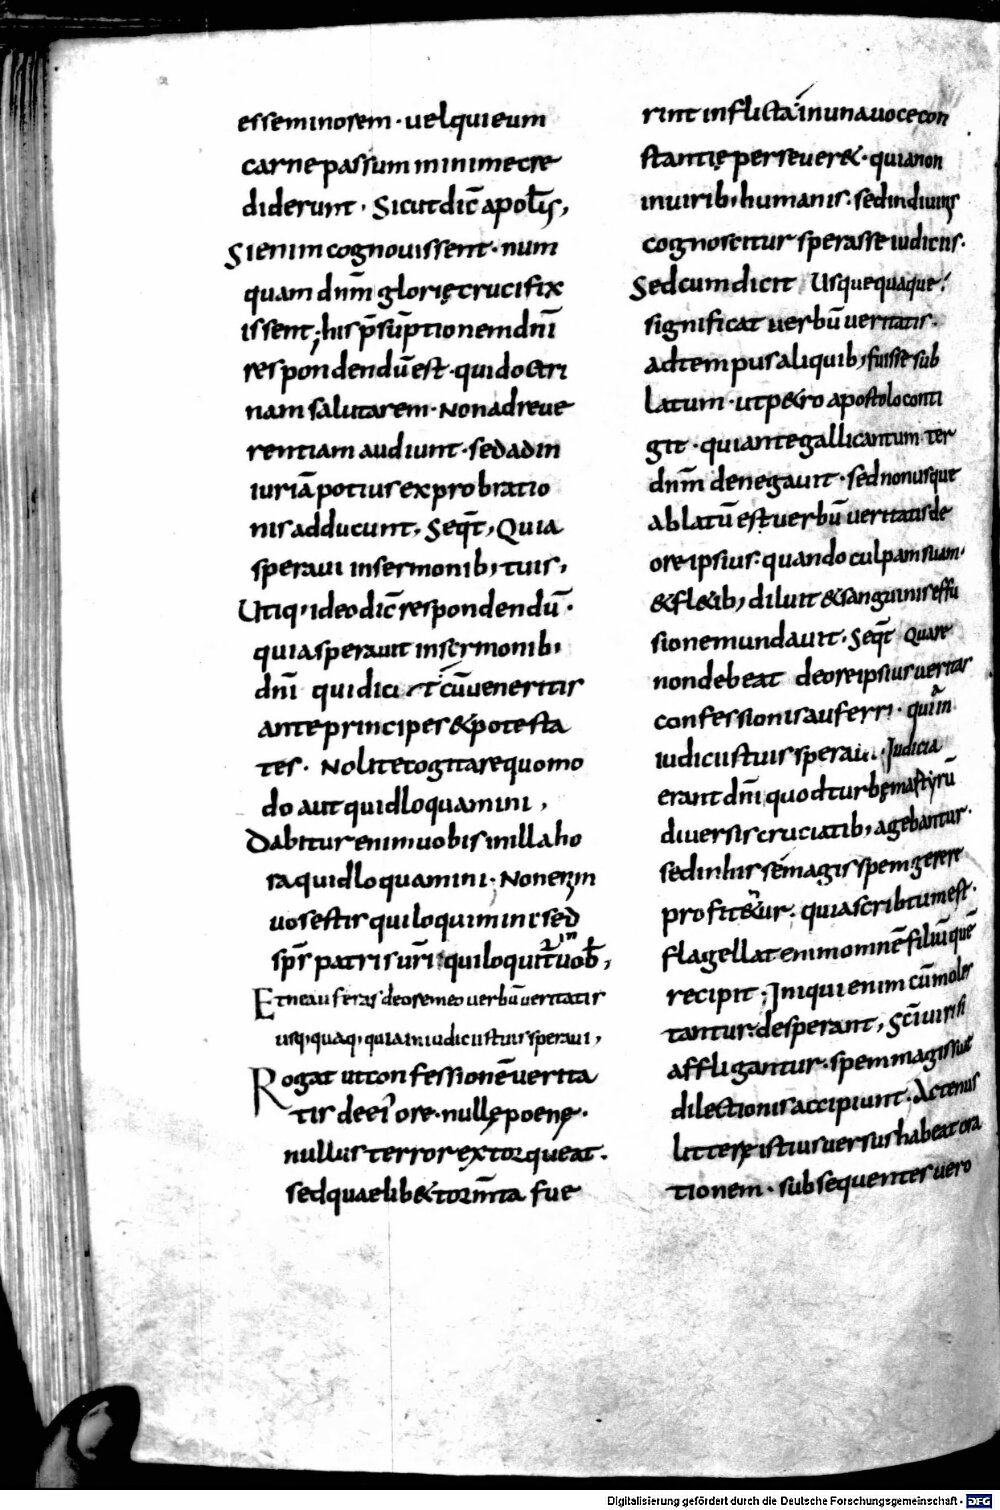 esse minorem · uel qui eum
carne passum minime cre
diderunt · Sicut dic̄ apost̄s,
Si enim cognouissent · num
quam dnm̄ glorię crucifix
issent; his p̄sūptionem dnī
respondendū est · qui doctri
nam salutarem · Non ad reue
rentiam audiunt · sed ad in
iuriā potius exprobratio
nis adducunt, Seqt̄, Quia
speraui in sermonib; tuis,
Utiq; ideo dic̄ respondendū ·
quia sperauit in sermonib;
dnī qui dicit cū ueneritis
ante principes & potesta
tes · Nolite cogitare quomo
do aut quid loquamini,
Dabitur enim uobis in illa ho
ra quid loquamini · Non enim
uos estis qui loquimini sed
sp̄s patris ur̄i qui loquit̄ in uob̄,
Et ne auferas de ore meo uerbū ueritatis
usq; quaq; quia in iudiciis tuis speraui,
Rogat ut confessionē uerita
tis de ei' ore · nullę poenę ·
nullus terror extorqueat ·
sed quaelib& torm̄ta fue
rint inflicta in una uoce con
stantię perseuer& · quia non
in uirib; humanis · sed in diuinis
cognoscitur sperasse iudiciis ·
Sed cum dicit Usquequaque
significat uerbū ueritatis ·
ad tempus aliquib; fuisse sub
latum · ut p&ro apostolo conti
git · quia ante galli cantum ter
dnm̄ denegauit · sed non usque
ablatū est uerbū ueritatis de
ore ipsius · quando culpam suam
& fl&ib; diluit & sanguinis effu
sione mundauit · Seqt̄ Quare
non debeat de ore ipsius ueritas
confessionis auferri · quia in
iudiciis tuis speraui · Iudicia
erant dnī quod turbę martyrū
diuersis cruciatib; agebantur ·
sed in his se magis spem gerere
profit&ur · quia scribtum est ·
flagellat enim omnē filiū quē
recipit; Iniqui enim cū moles
tantur · desperant, Sc̄i uiri si
affligantur · spem magis suae
dilectionis accipiunt · Actenus
litterę istius uersus habeat ora
tionem · subsequentes uero
Digitalisierung gefördert durch die Deutsche Forschungsgemeinschaft - DFG